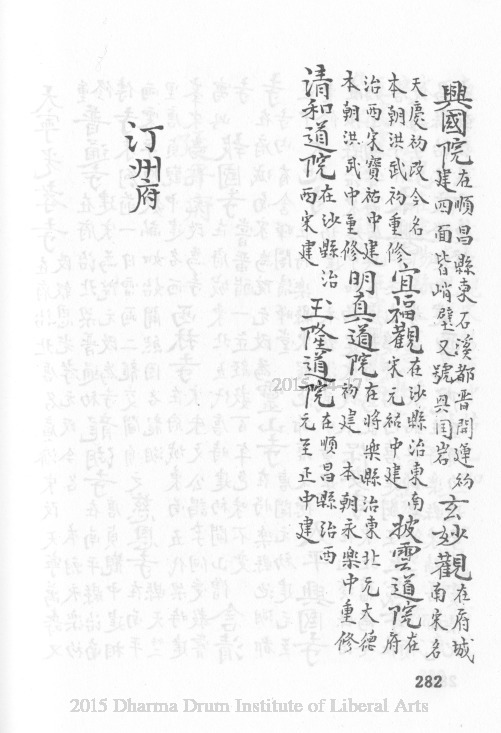 興國院在順昌縣東石溪都晋開運初建四面皆峭壁又號興国岩玄妙觀在府城南宋名
天慶初改今名本朝洪武初重修宜福觀在沙縣治東南宋元祐中建披雲道院在府
治西宋寶祐中建本朝洪武中重修明真道院在將樂縣治東北元大德初建本朝永樂中重修
清和道院在沙縣治西宋建玉隆道院在順昌縣治西元至正中建
汀州府
282
2015 Dharma Drum Institute of Liberal Arts